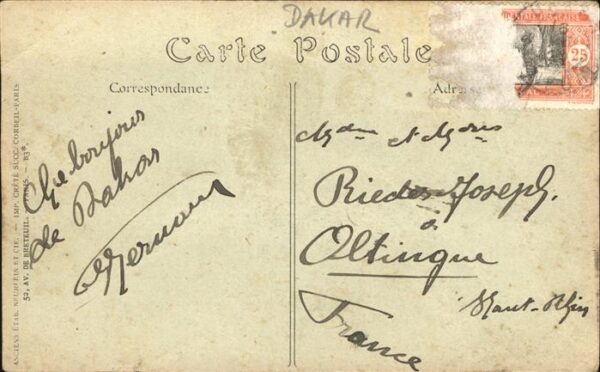 DAKAR
Carte Postale
Correspondance
Adresse
25
bonjours
de Dakar
Fernand
et
Rieder Joseph
à
Oltingue
Haut-Rhin
France
ANCIENS ÉTAB. NEURDEIN ET CIE. — IMP. CRÉTÉ SUCC. CORBEIL-PARIS
52, AV. DE BRETEUIL. — PARIS. B3°